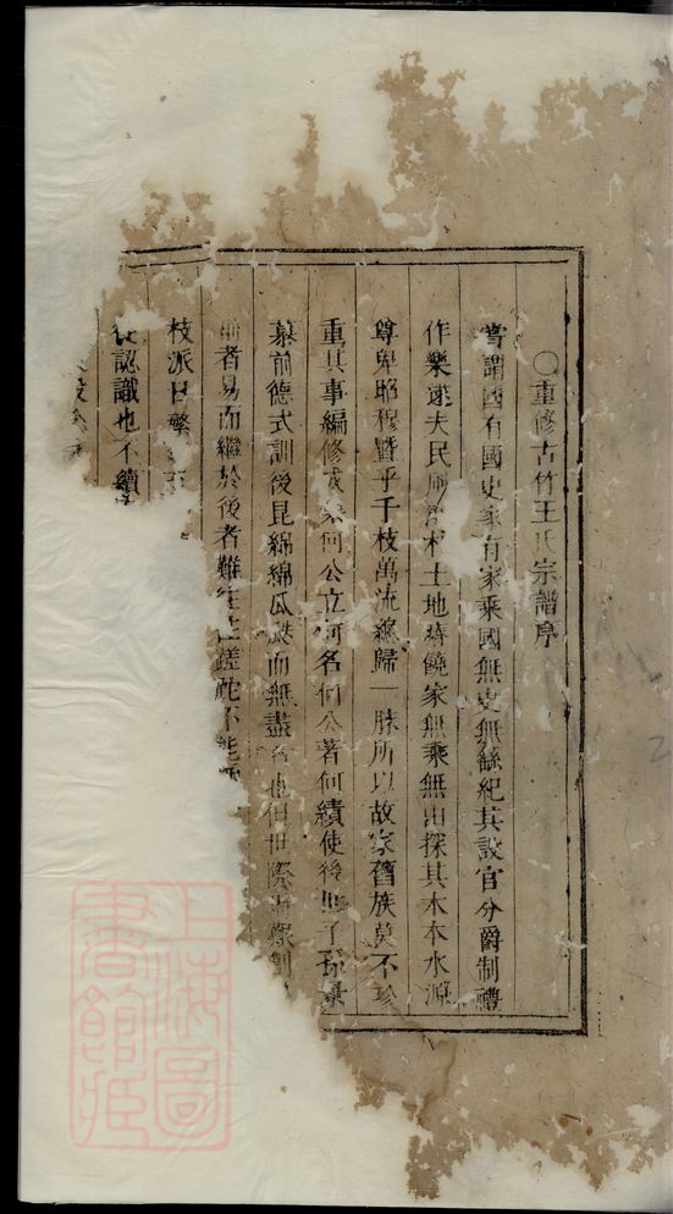 〇重修古竹王氏宗譜序
嘗謂國有國史家有家乘國無史無繇紀其設官分爵制禮
作樂逮夫民風 土地 饒家無乘無由探其木本水源
尊卑昭穆暨乎千枝萬流總歸一脉所以故家舊族莫不珍
重其事編修 何公立何名何公著何績使後世子孫景
慕前德式訓後昆綿綿瓜瓞而無盡者也但世際 艱創
前者易而繼於後者難往往蹉跎不能
枝派日繁
從認識也不續
上海圖書館藏